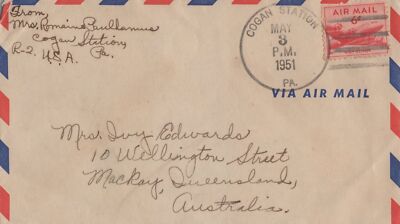 From,
Mrs. Romaine Paulhamus
Cogan Station,
R-2. Pa.
U.S.A.
COGAN STATION
MAY
3
P.M.
1951
PA.
AIR MAIL
6¢
VIA AIR MAIL
Mrs. Ivy Edwards
10 Wellington Street
Mackay, Queensland,
Australia.